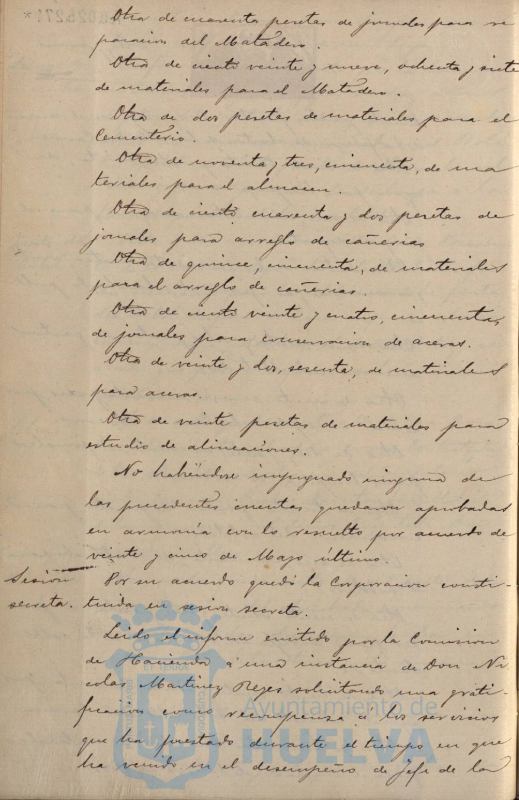 Otra de cuarenta pesetas de jornales para re
paracion del Matadero.
Otra de ciento veinte y nueve, ochenta y siete
de materiales para el Matadero.
Otra de dos pesetas de materiales para el
Cementerio.
Otra de noventa y tres, cincuenta, de ma
teriales para el almacen.
Otra de ciento cuarenta y dos pesetas de
jornales para arreglo de cañerias
Otra de quince, cincuenta, de materiales
para el arreglo de cañerias.
Otra de ciento veinte y cuatro, cincuenta,
de jornales para conservacion de aceras.
Otra de veinte y dos, sesenta, de materiales
para aceras.
Otra de veinte pesetas de materiales para
estudio de alineaciones.
No habiéndose impugnado ninguna de
las precedentes cuentas quedaron aprobadas
en armonía con lo resuelto por acuerdo de
veinte y cinco de Mayo último.
Sesion
secreta.
Por su acuerdo quedó la Corporacion consti-
tuida en sesion secreta.
Leido el informe emitido por la Comision
de Hacienda á una instancia de Don Ni
colas Martinez Reyes solicitando una grati-
ficacion como recompensa á los servicios
que ha prestado durante el tiempo en que
ha venido en el desempeño de Jefe de la
Ayuntamiento de
HUELVA